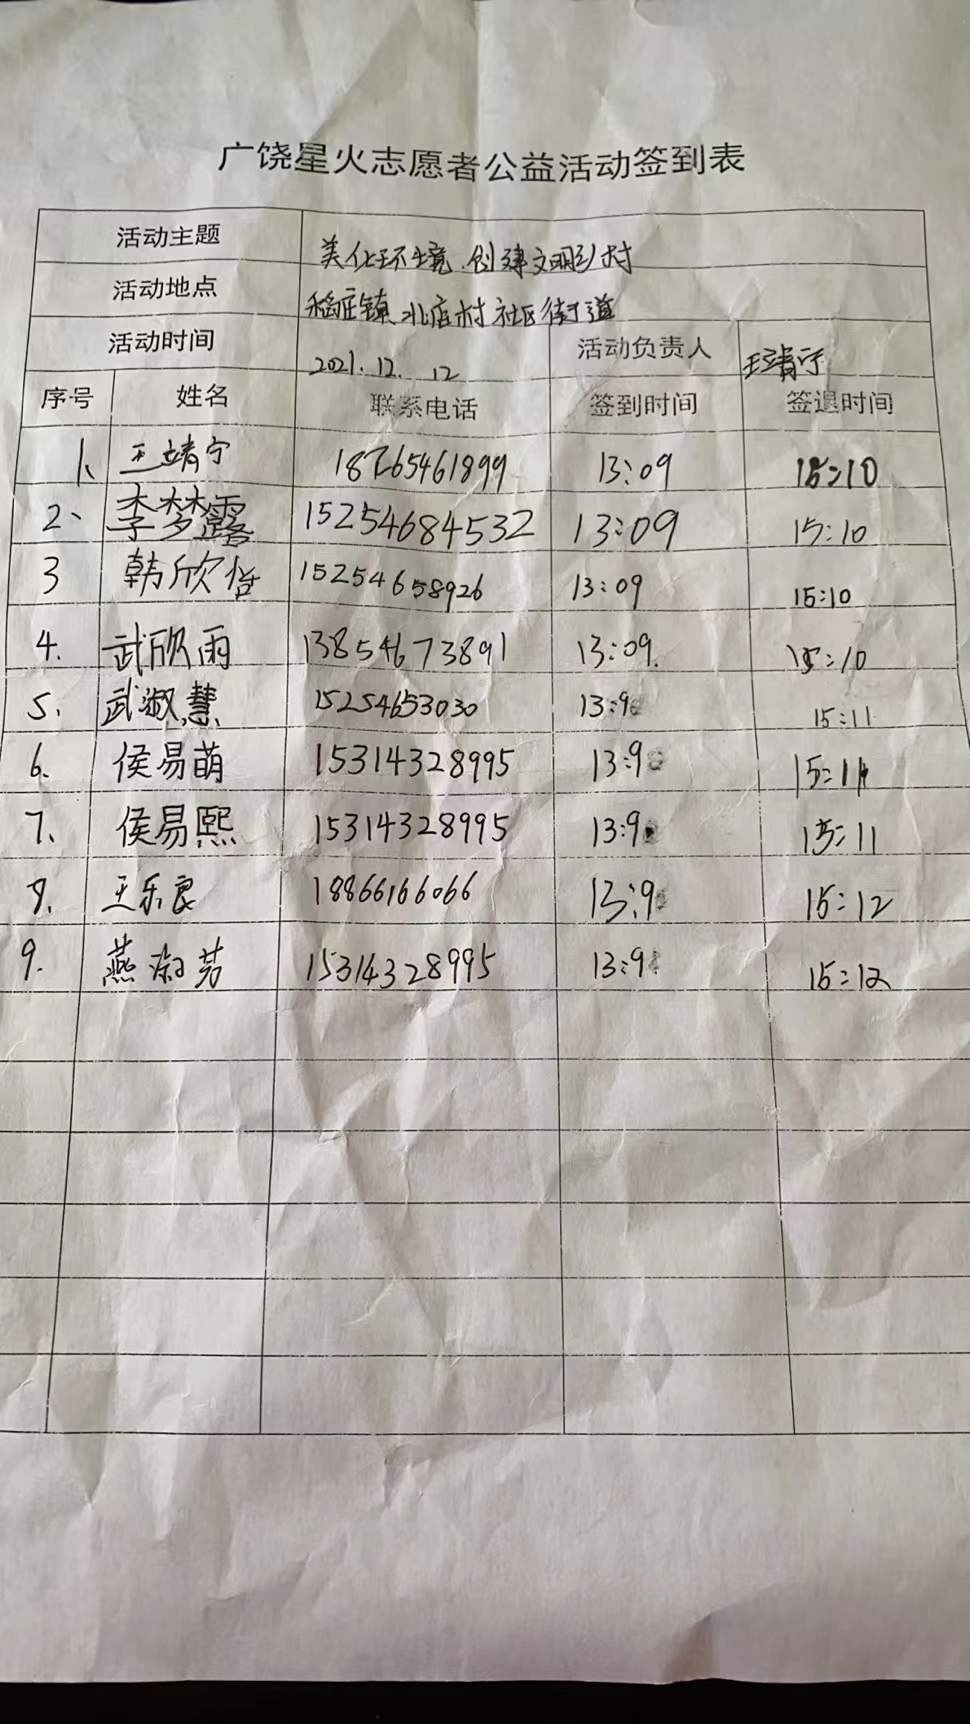 广饶星火志愿者公益活动签到表
活动主题 美化环境.创建文明乡村
活动地点 稻庄镇北店村社区街道
活动时间 2021.12.12 活动负责人 王靖宁
序号 姓名 联系电话 签到时间 签退时间
1、 王靖宁 18265461899 13:09 15:10
2、 李梦露 15254684532 13:09 15:10
3 韩欣怡 15254658926 13:09 15:10
4. 武欣雨 13854673891 13:09. 15:10
5. 武淑慧 15254653030 13:9 15:11
6. 侯易萌 15314328995 13:9 15:11
7. 侯易熙 15314328995 13:9 15:11
8. 王乐良 18866166066 13:9 15:12
9. 燕淑芳 15314328995 13:9 15:12